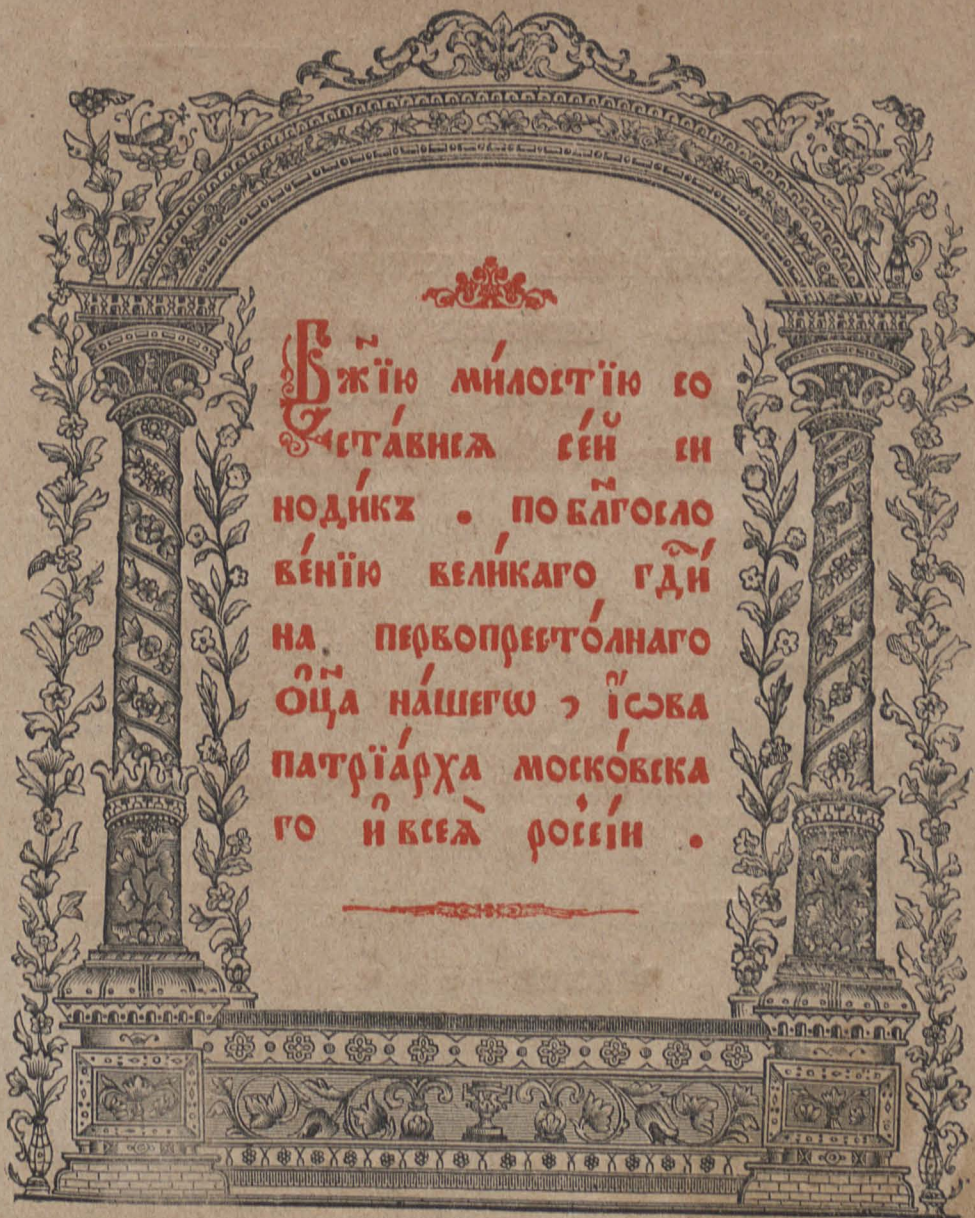 Бж҃їю ми́лостїю со
ста́висѧ се́й си
ноди́къ . по бл҃госло
ве́нїю вели́каго гд҃и́
на первопресто́лнаго
ѻ҆ц҃а на́шегѡ , і҆́ѡва
патрїа́рха моско́вска
го и҆ всеѧ̀ росі́и .